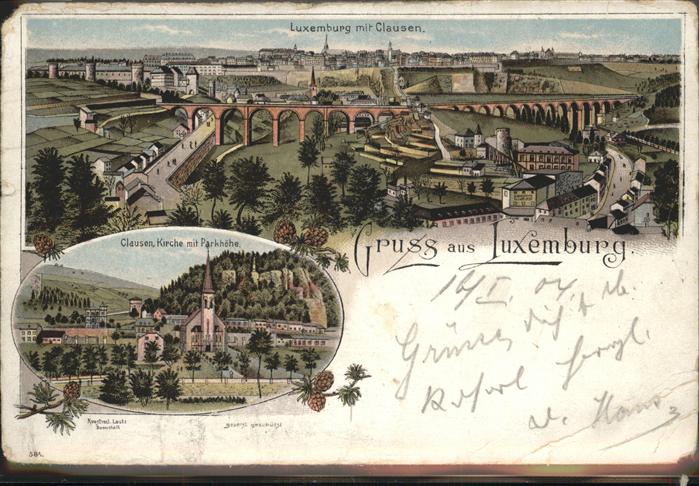 Luxemburg mit Clausen.
Clausen, Kirche mit Parkhöhe.
Gruss aus Luxemburg.
04.
Grüsse dich
herzl.
Hans
Kunstverl. Lautz
Darmstadt
GESETZL. GESCHÜTZT
584.